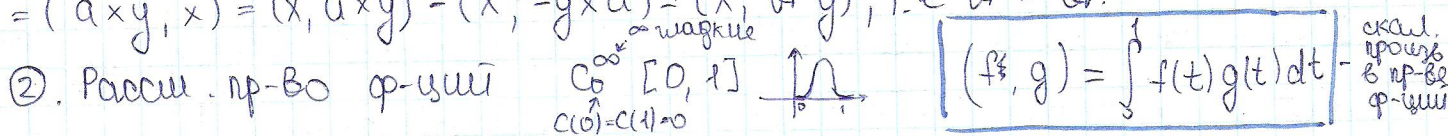 = (a × y, x) = (x, a × y) = (x, -y × a) =
∞ гладкие
②. Рассм. пр-во ф-ций C₀^∞ [0, 1]
C(0)=C(1)=0
0 1
(f, g) = ∫₀¹ f(t) g(t) dt - скал. произв в пр-ве ф-ций